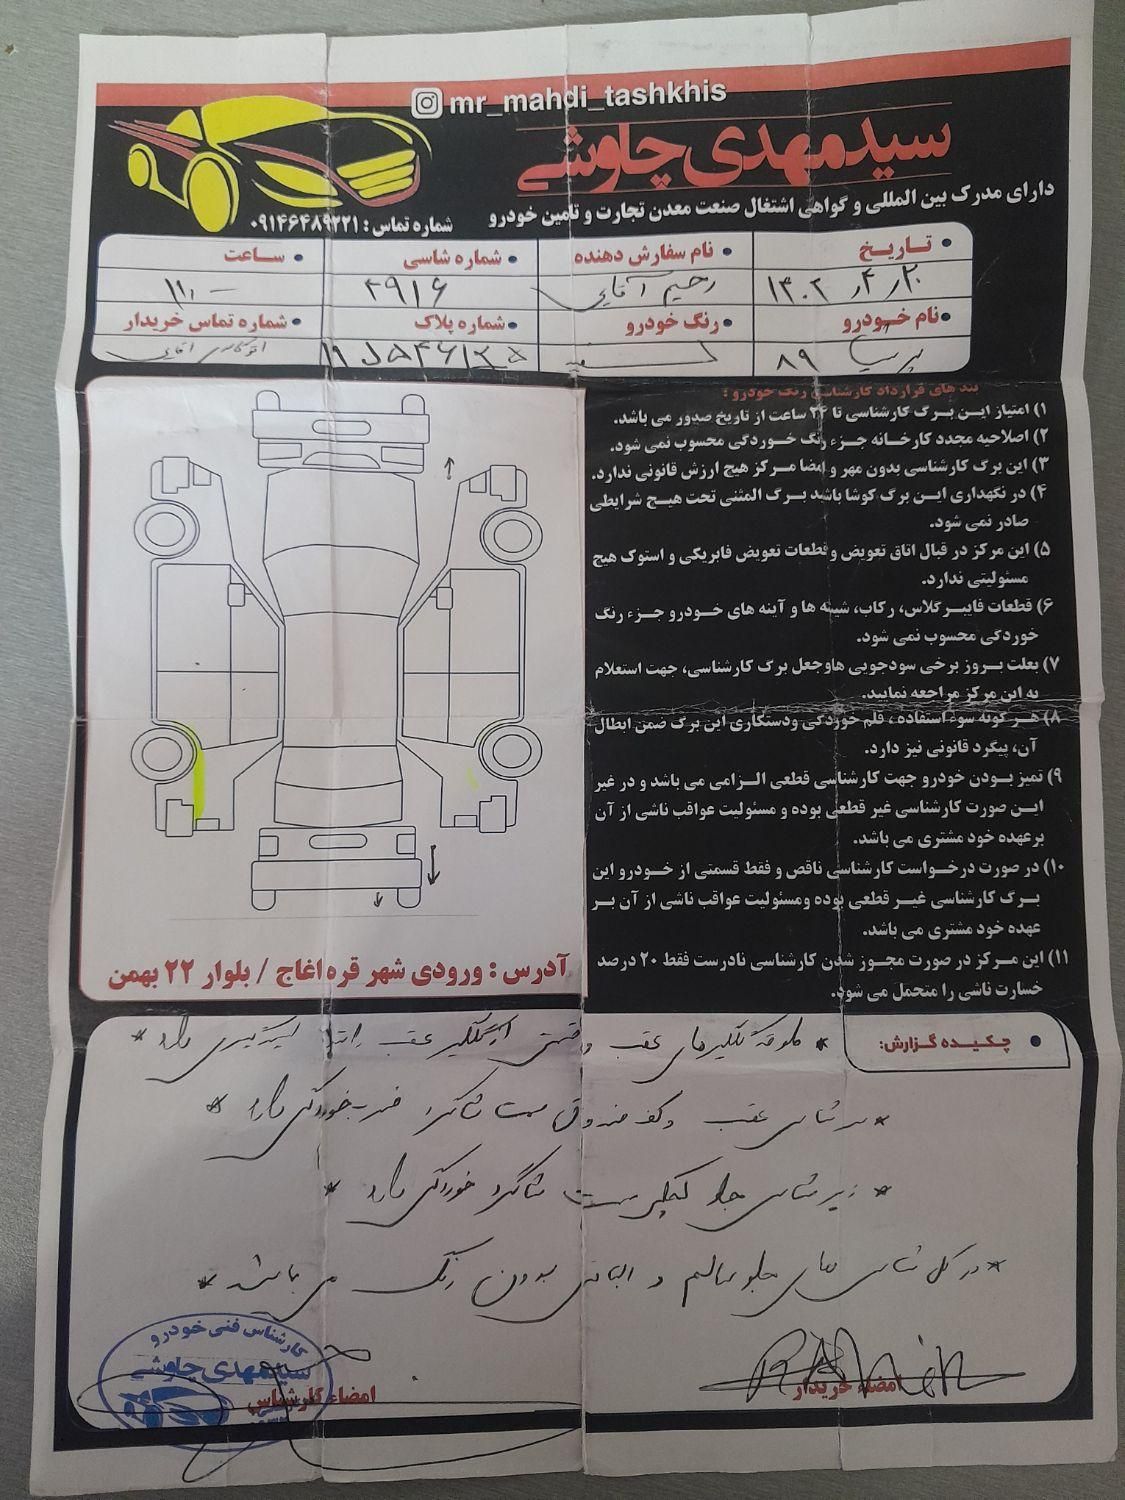 mr_mahdi_tashkhis
سیدمهدی چاوشی
دارای مدرک بین المللی و گواهی اشتغال صنعت معدن تجارت و تامین خودرو
شماره تماس : ۰۹۱۴۶۴۸۹۲۲۱
• تاریخ • نام سفارش دهنده • شماره شاسی • ساعت
۱۴۰۲٫۴٫۲۰ رحیم آقایی ۴۹۱۶ ۱۱٫-
• نام خودرو • رنگ خودرو • شماره پلاک • شماره تماس خریدار
۸۹ سفید
بند های قرارداد کارشناسی رنگ خودرو :
۱) امتیاز ایـن بـرگ کارشناسی تا ۲۴ ساعت از تاریخ صدور می باشد.
۲) اصلاحیه مجدد کارخـانه جـزء رنگ خـوردگی محسوب نمی شود.
۳) این برگ کارشناسی بدون مهر و امضا مـرکز هیچ ارزش قانونی ندارد.
۴) در نگهداری ایـن بـرگ کوشا باشید بـرگ المثنی تحت هیـچ شرایطی
صادر نمی شود.
۵) این مرکز در قبال اتاق تعویض وقطعات تعویض فابریکی و استوک هیچ
مسئولیتی ندارد.
۶) قطعات فایبـرگلاس، رکاب، شیشه ها و آینه های خـودرو جـزء رنگ
خوردگی محسوب نمی شود.
۷) بعلت بـروز برخی سودجویی هاوجعل برگ کارشناسی، جهت استعلام
به این مرکز مراجعه نمایید.
۸) هـر گونه سوء استفاده ، قلم خوردگی ودستکاری این برگ ضمن ابطال
آن، پیگرد قانونی نیز دارد.
۹) تمیز بـودن خودرو جهت کارشناسی قطعی الـزامی می باشد و در غیر
ایـن صورت کارشناسی غیر قطعی بوده و مسئولیت عواقب ناشی از آن
برعهده خود مشتری می باشد.
۱۰) در صورت درخـواست کارشناسی ناقص و فقط قسمتی از خـودرو این
بـرگ کارشناسی غیـر قطعی بوده ومسئولیت عواقب ناشی از آن بـر
عهده خود مشتری می باشد.
۱۱) این مـرکز در صورت مجوز شدن کارشناسی نادرست فقط ۲۰ درصد
خسارت ناشی را متحمل می شود.
آدرس : ورودی شهر قره اغاج / بلوار ۲۲ بهمن
• چکیـده گـزارش:
گلگیرهای عقب گلگیر عقب لیسه گیری دارد *
* سر شاسی عقب و کف صندوق سمت شاگرد ضربه خوردگی دارد *
* زیر شاسی جلو سمت شاگرد خوردگی دارد *
* در کل شاسی های جلو سالم و الباقی بدون رنگ می باشد *
کارشناس فنی خودرو
سیدمهدی چاوشی
امضاء کارشناس
امضاء خریدار